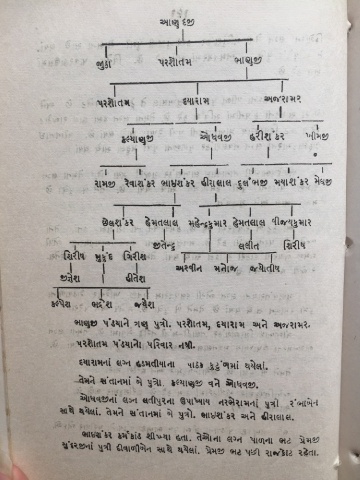 આણુદજી
જુઠા પરશોતમ ભાણજી
પરશોતમ દયારામ અજરામર
કલ્યાણજી ઓધવજી હરીશંકર ખીમજી
રામજી રેવાશંકર ભાઇશંકર હીરાલાલ દુર્લભજી મયાશંકર મેઘજી
છેલશંકર હેમતલાલ મહેન્દ્રકુમાર હેમતલાલ વિજયકુમાર
જીતેન્દ્ર લલીત ગિરીષ
ગિરીષ મુકુંદ ગિરીશ
જીજ્ઞેશ હીતેશ અરવીન મનોજ જ્યોતીષ
કલ્પેશ ભાવેશ જયેશ
ભાણજી પંડયાને ત્રણ પુત્રો. પરશોતમ, દયારામ અને અજરામર.
પરશોતમ પંડયાનો પરિવાર નથી.
દયારામનાં લગ્ન હડમતીયાના પાઠક કુટુંબમાં થયેલાં.
તેમને સંતાનમાં બે પુત્રો. કલ્યાણજી અને ઓધવજી.
ઓધવજીનાં લગ્ન લતીપુરના ઉપાધ્યાય નરભેરામનાં પુત્રી રંભાબેન
સાથે થયેલાં. તેમને સંતાનમાં બે પુત્રો. ભાઇશંકર અને હીરાલાલ.
ભાઇશંકર કર્મકાંડ શીખ્યા હતા. તેઓના લગ્ન પાળના ભટ પ્રેમજી
સુંદરજીનાં પુત્રી દીવાળીબેન સાથે થયેલાં. પ્રેમજી ભટ પછી રાજકોટ રહેતા.